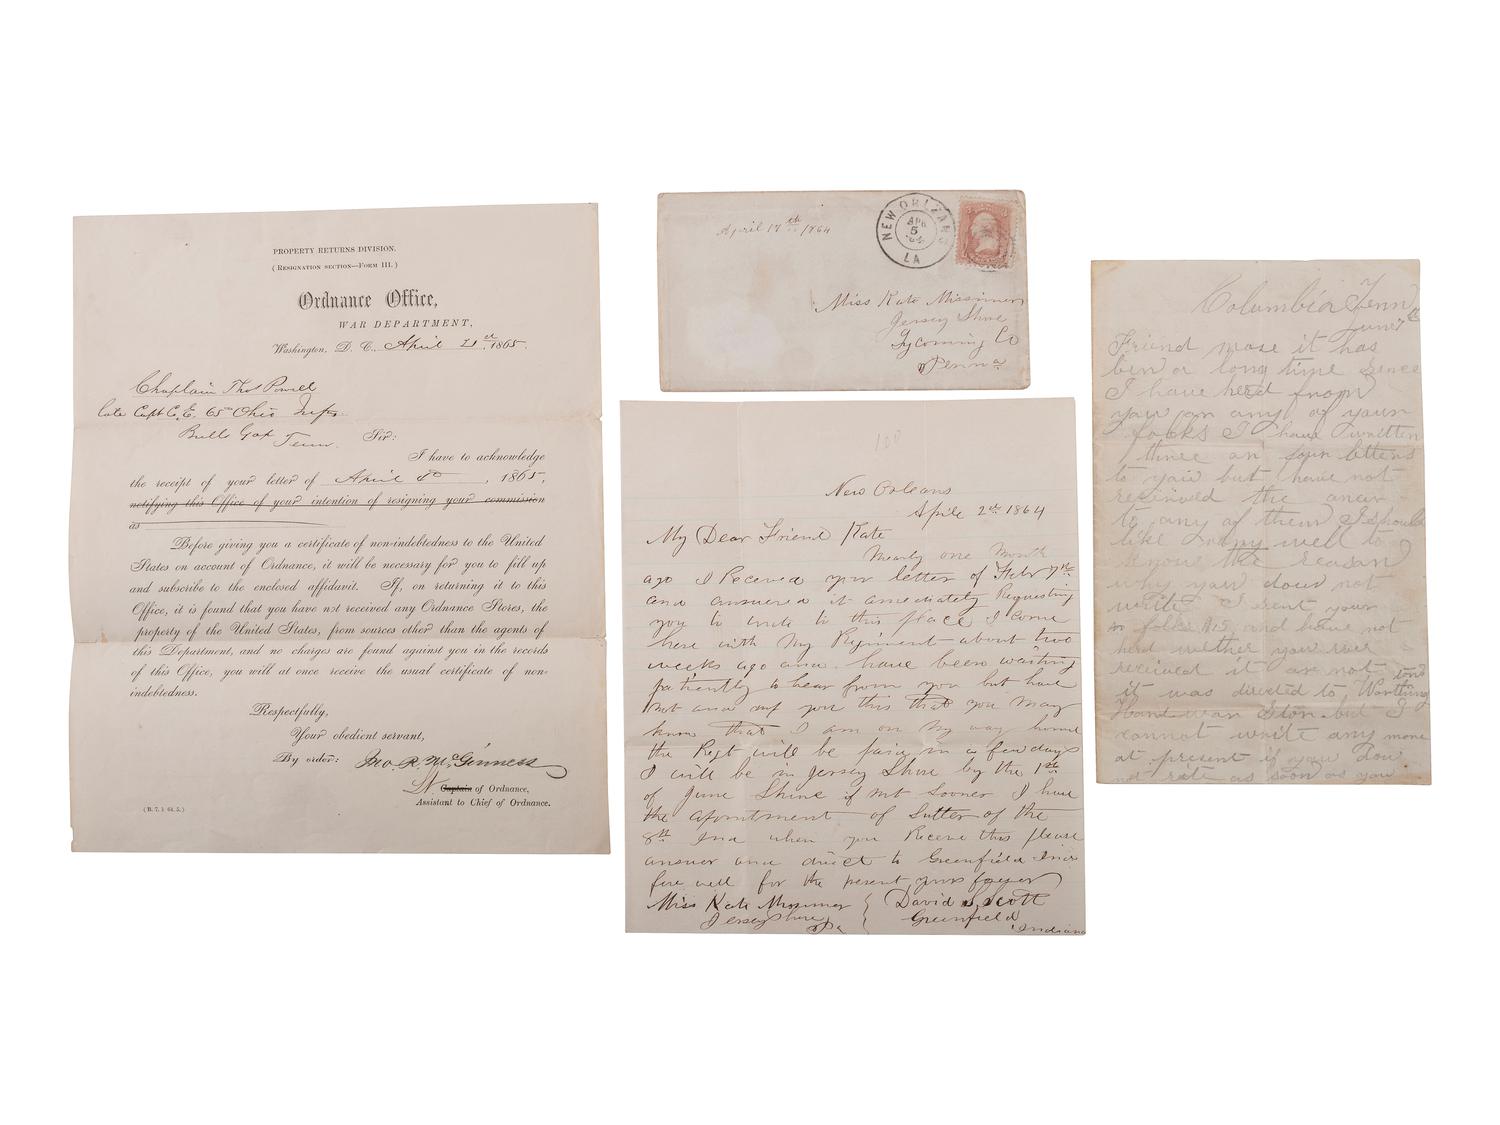 PROPERTY RETURNS DIVISION.
(RESIGNATION SECTION—FORM III.)
Ordnance Office,
WAR DEPARTMENT,
Washington, D. C., April 21st, 1865.
Chaplain Thos Powell
late Capt Co. E. 65th Ohio Infy.
Bulls Gap Tenn. Sir:
I have to acknowledge
the receipt of your letter of April 8th, 1865,
notifying this Office of your intention of resigning your commission
as
Before giving you a certificate of non-indebtedness to the United
States on account of Ordnance, it will be necessary for you to fill up
and subscribe to the enclosed affidavit. If, on returning it to this
Office, it is found that you have not received any Ordnance Stores, the
property of the United States, from sources other than the agents of
this Department, and no charges are found against you in the records
of this Office, you will at once receive the usual certificate of non-
indebtedness.
Respectfully,
Your obedient servant,
By order: Jno. R. McGinness
Captain of Ordnance,
Assistant to Chief of Ordnance.
April 17th 1864
NEW ORLEANS
APR
5
'64
LA
Miss Kate Missimer
Jersey Shore
Lycoming Co
Penna
100
New Orleans
Aprile 2nd 1864
My Dear Friend Kate
Nearly one Month
ago I Received your letter of Feb 7th
and answered it amediately Requesting
you to write to this place I come
here with My Regiment about two
weeks ago and have been waiting
patiently to hear from you but have
not and my you this that you May
know that I am on My way home
the Regt will be paid in a few days
I will be in Jersey Shore by the 1st
of June Shure if not Sooner I have
the apointment of Sutler of the
8th Ind when you Receive this please
answer and direct to Greenfield Inda
fare well for the present yours forever
Miss Kate Missimer { David S Scott
Jersey Shore { Greenfield
Pa Indiana
Columbia Tenn
June 7th
Friend mose it has
bin a long time sence
I have herd from
you or any of your
folks I have written
three or four letters
to you but have not
received the answer
to any of them I should
like very well to
know the reason
why you dour not
write I sent your
folks $15 and have not
herd wether you ever
received it or not
it was directed to Worthing ton
Hard war Ston but I
cannot write any more
at present if you dow
not rite as soon as you